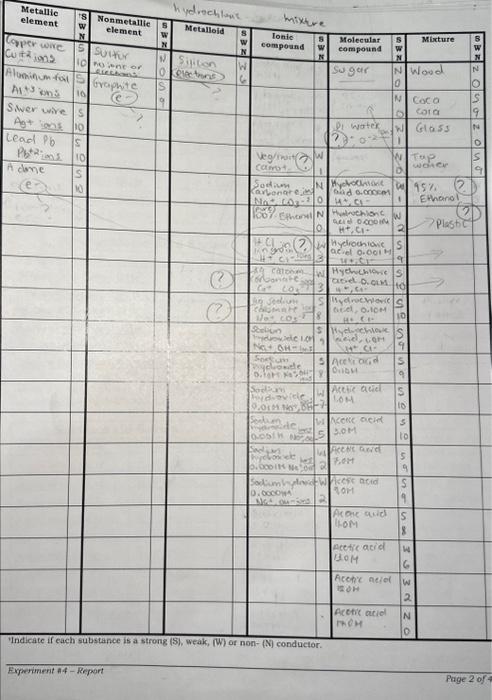 hydrochloric
mixture
Metallic element
S W N
Nonmetallic element
S W N
Metalloid
S W N
Ionic compound
S W N
Molecular compound
S W N
Mixture
S W N
Copper wire S
Cu+2 ions 10
Sulfur N
no ions or 0
electrons
Silicon W
electrons 6
Sugar N
0
Wood N
0
Aluminum foil S
Al+3 ions 10
Graphite S
e- 9
?
N
0
Coca S
cola 9
Silver wire S
Ag+ ions 10
DI water W
? 1
Glass N
0
Lead Pb S
Pb+2 ions 10
Veg/fruit ? W
carrot 1
N
0
Tap S
water 9
A dime S
e- 10
?
Sodium N
carbonate
Na+, CO3-2 0
Hydrochloric W
acid 0.0000M
H+, Cl- 1
95% ?
Ethanol
(pure)
100% Ethanol N
0
Hydrochloric W
acid 0.0001M
H+, Cl- 2
?
Plastic
HCl in ? W
H+, Cl- ions 3
Hydrochloric S
acid 0.001M
H+, Cl- 9
?
calcium W
carbonate
Ca+ CO3-2 3
Hydrochloric S
acid 0.01M
H+, Cl- 10
?
sodium S
carbonate
Na+, CO3-2 8
Hydrochloric S
acid, 0.10M
H+, Cl- 10
Sodium S
hydroxide 1.0M
Na+, OH- ions 9
Hydrochloric S
acid, 1.0M
H+ Cl- 9
Sodium S
hydroxide
0.10M Na+, OH- 8
Acetic acid S
0.10M 9
Sodium W
hydroxide
0.01M Na+, OH- 7
Acetic acid S
1.0M 10
Sodium W
hydroxide
0.001M Na+, OH- 5
Acetic acid S
3.0M 10
Sodium W
hydroxide
0.0001M Na+, OH- 2
Acetic acid S
7.0M 9
Sodium hydroxide W
0.0000M
Na+, OH- ions 2
Acetic acid S
9.0M 9
Acetic acid S
11.0M 8
Acetic acid W
13.0M 6
Acetic acid W
2
Acetic acid N
0
*Indicate if each substance is a strong (S), weak, (W) or non- (N) conductor.
Experiment #4 – Report
Page 2 of 4